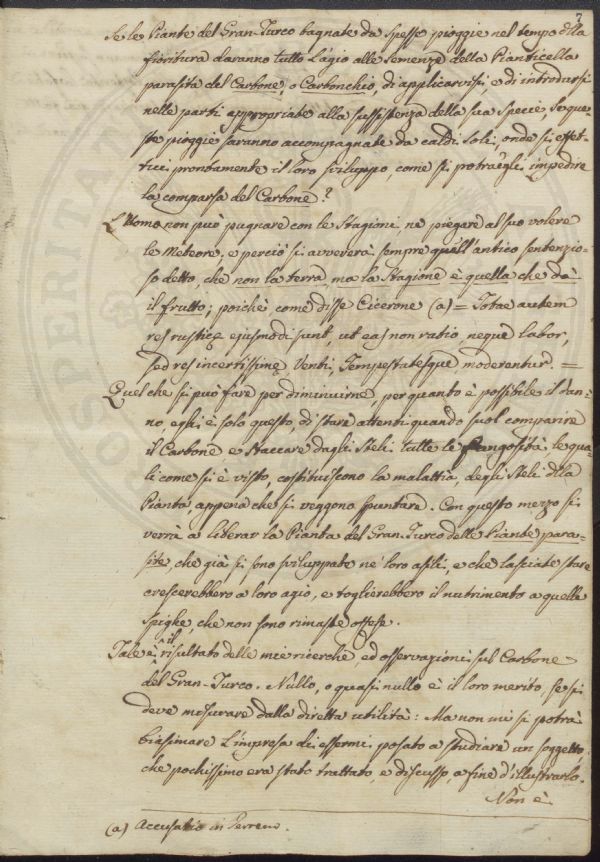 7
Se le Piante del Gran-Turco bagnate da spesse pioggie nel tempo della
fioritura daranno tutto l'agio alle Semenze della Pianticella
parasita del Carbone, o Carbonchio, di applicarvisi, e di introdursi
nelle parti appropriate alla sussistenza della sua specie, se que-
ste pioggie saranno accompagnate da caldi Soli, onde si effet-
tui prontamente il loro sviluppo, come si potrà egli impedire
la comparsa del Carbone?
L'Uomo non può pugnare con le Stagioni, ne piegare al suo volere
le Meteore, e perciò si avvererà sempre quell'antico sentenzio-
so detto, che non la terra, ma la Stagione è quella che dà
il frutto; poichè come disse Cicerone (a) = Totae autem
res rusticę ejusmodi sunt, ut eas non ratio, neque labor,
sed res incertissimę, Venti, Tempestatesque, moderentur. =
Quel che si può fare per diminuirne, per quanto è possibile il dan-
no, egli è solo questo, di stare attenti quando suol comparire
il Carbone e staccare dagli Steli tutte le fungosità le qua-
li come si è visto, costituiscono la malattia, degli Steli della
Pianta, appena che si veggono spuntare. Con questo mezzo si
verrà a liberar la Pianta del Gran-Turco delle Piante para-
site, che già si sono sviluppate ne' loro asili, e che lasciate stare
crescerebbero a loro agio, e toglierebbero il nutrimento a quelle
Spighe, che non sono rimaste offese.
Tale è il risultato delle mie ricerche, ed osservazioni sul Carbone
del Gran-Turco. Nullo, o quasi nullo è il loro merito, se si
deve misurare dalla diretta utilità: Ma non mi si potrà
biasimare l'impresa di essermi posato a studiare un soggetto
che pochissimo era stato trattato, e discusso, a fine d'illustrarlo.
Non è
(a) Accusatio in Verrem.